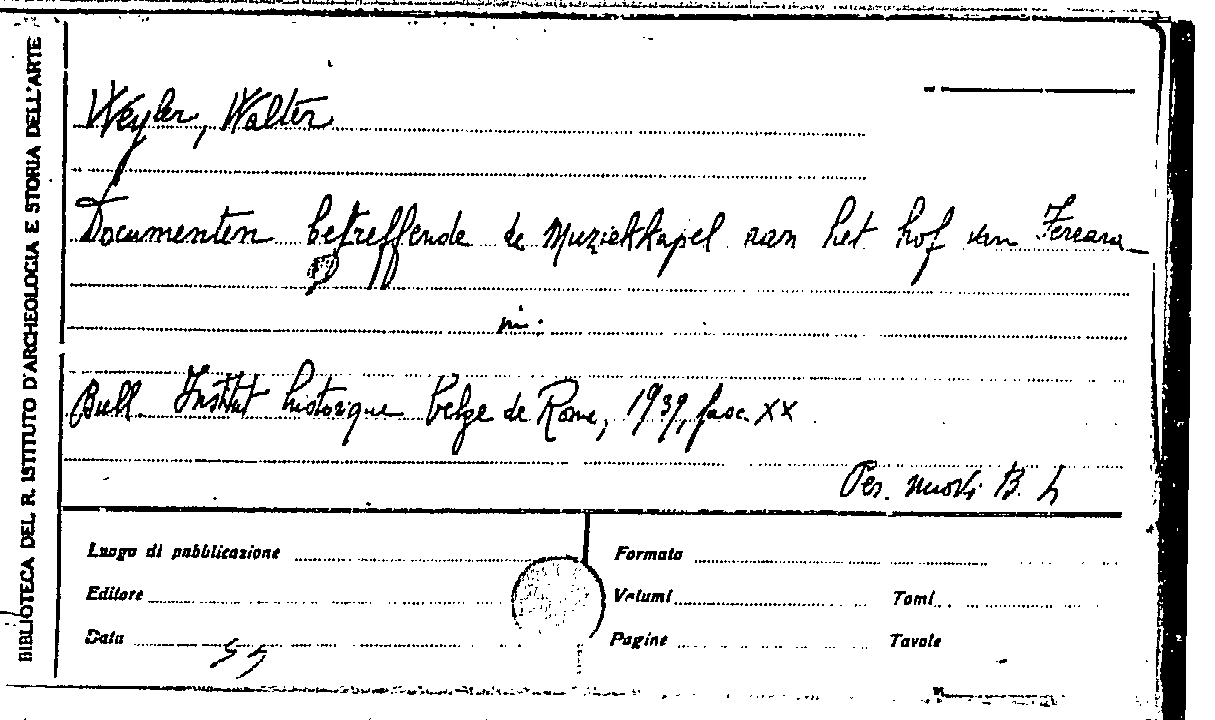 BIBLIOTECA DEL R. ISTITUTO D'ARCHEOLOGIA E STORIA DELL'ARTE
Weyler, Walter
Documenten betreffende de Muziekkapel aan het hof van Ferrara_
in:
Bull. Institut historique belge de Rome, 1939, fasc. XX
Per. nuovi B. 4
Luogo di pubblicazione
Formato
Editore
Volumi
Tomi
Data
Pagine
Tavole